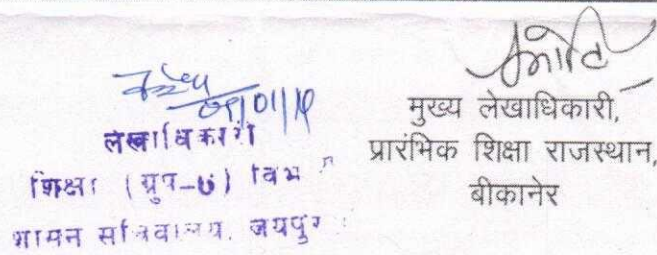 01/14
लेखाधिकारी
शिक्षा (ग्रुप-6) विभाग
शासन सचिवालय, जयपुर
मुख्य लेखाधिकारी,
प्रारंभिक शिक्षा राजस्थान,
बीकानेर